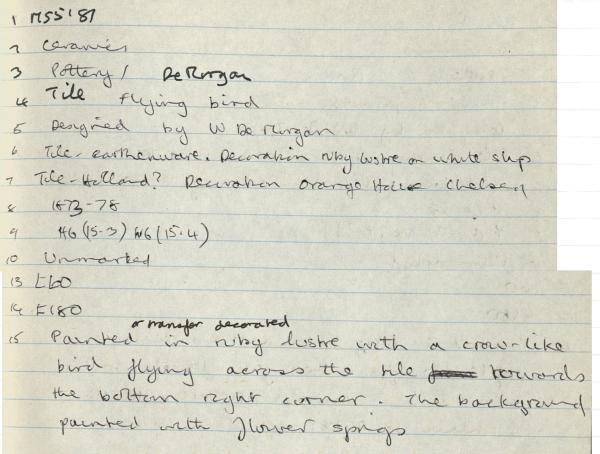 1 MSS'87
2 Ceramics
3 Pottery / De Morgan
4 Tile flying bird
5 Designed by W De Morgan
6 Tile - earthenware. Decoration ruby lustre on white slip
7 Tile - Holland? Decoration Orange House Chelsea
8 1873-78
9 H6 (15.3) W6 (15.4)
10 Unmarked
13 £60
14 £180
or transfer decorated
15 Painted in ruby lustre with a crow-like
bird flying across the tile towards
the bottom right corner. The background
painted with flower sprigs